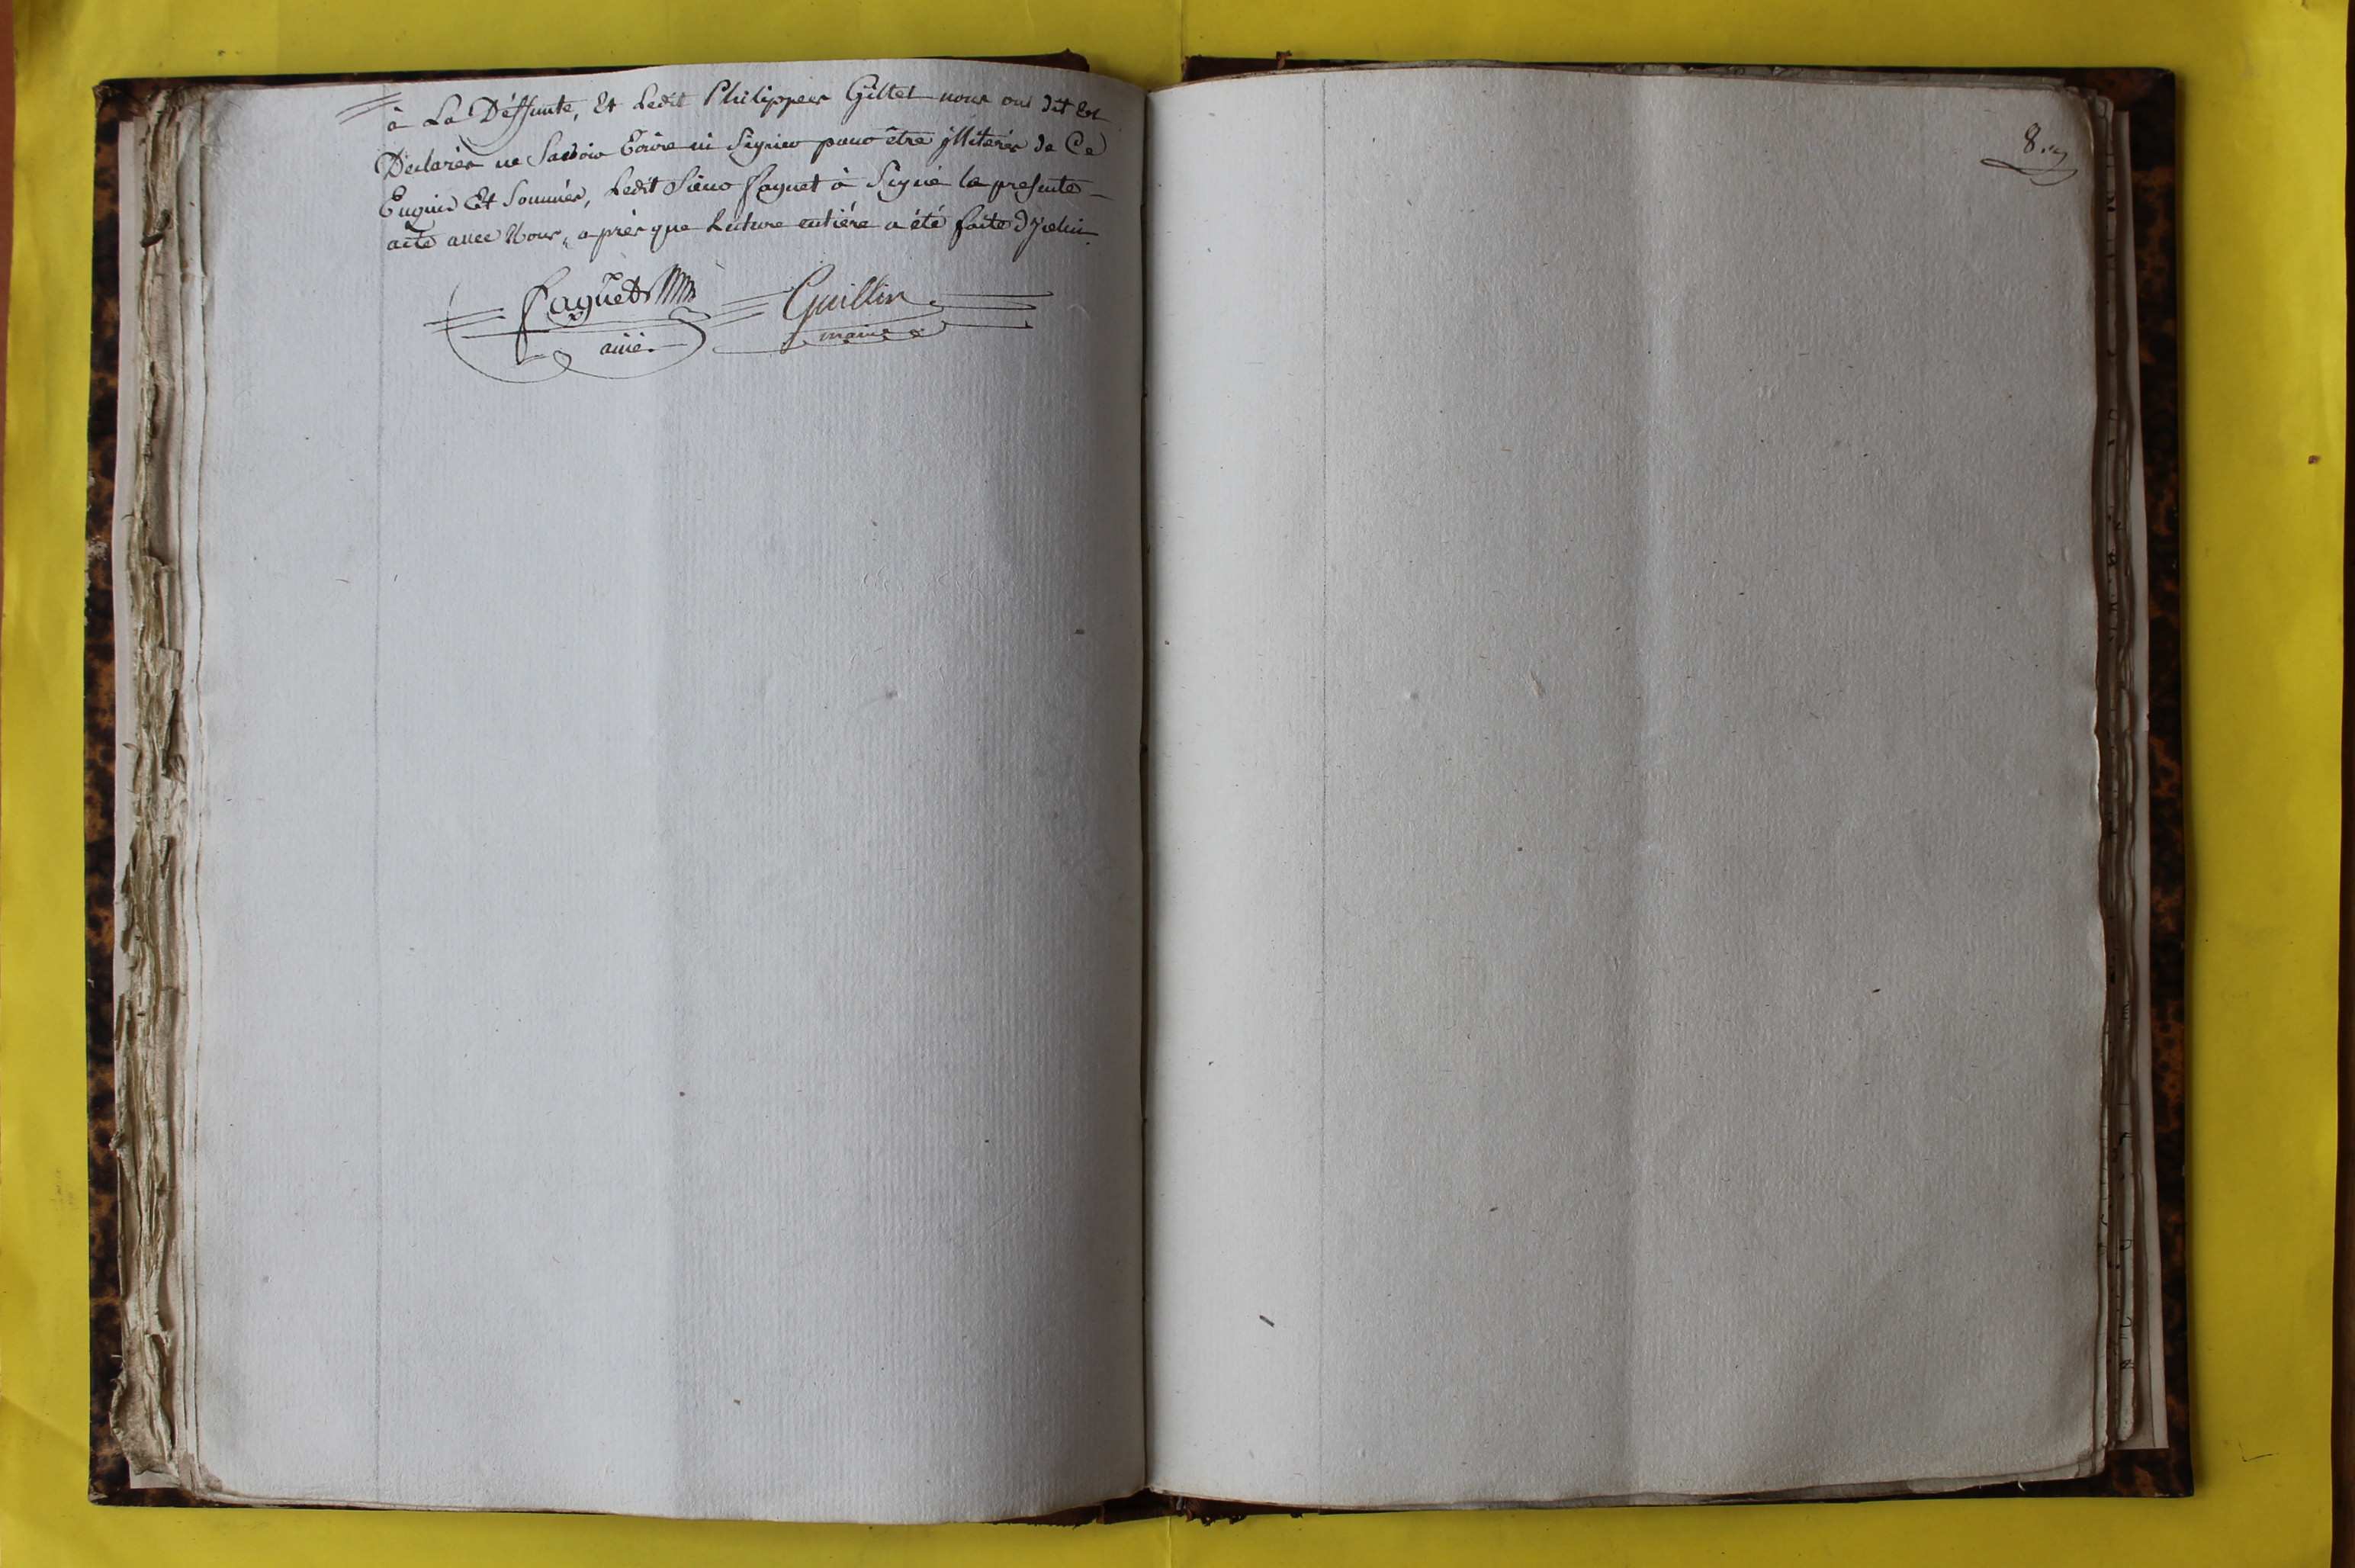 à La Déffunte, Et Ledit Philippes Giltet nous ont dit Et
Déclarés ne Savoir Ecrire ni Signier pour être jlliterés de Ce
Enquis Et Sommés, Ledit Sieur Faguet à Signé la presente
acte avec Nous, après que Lecture entiére a été faite d'jcelui
Faguet Guillin
ainé. maire
8.